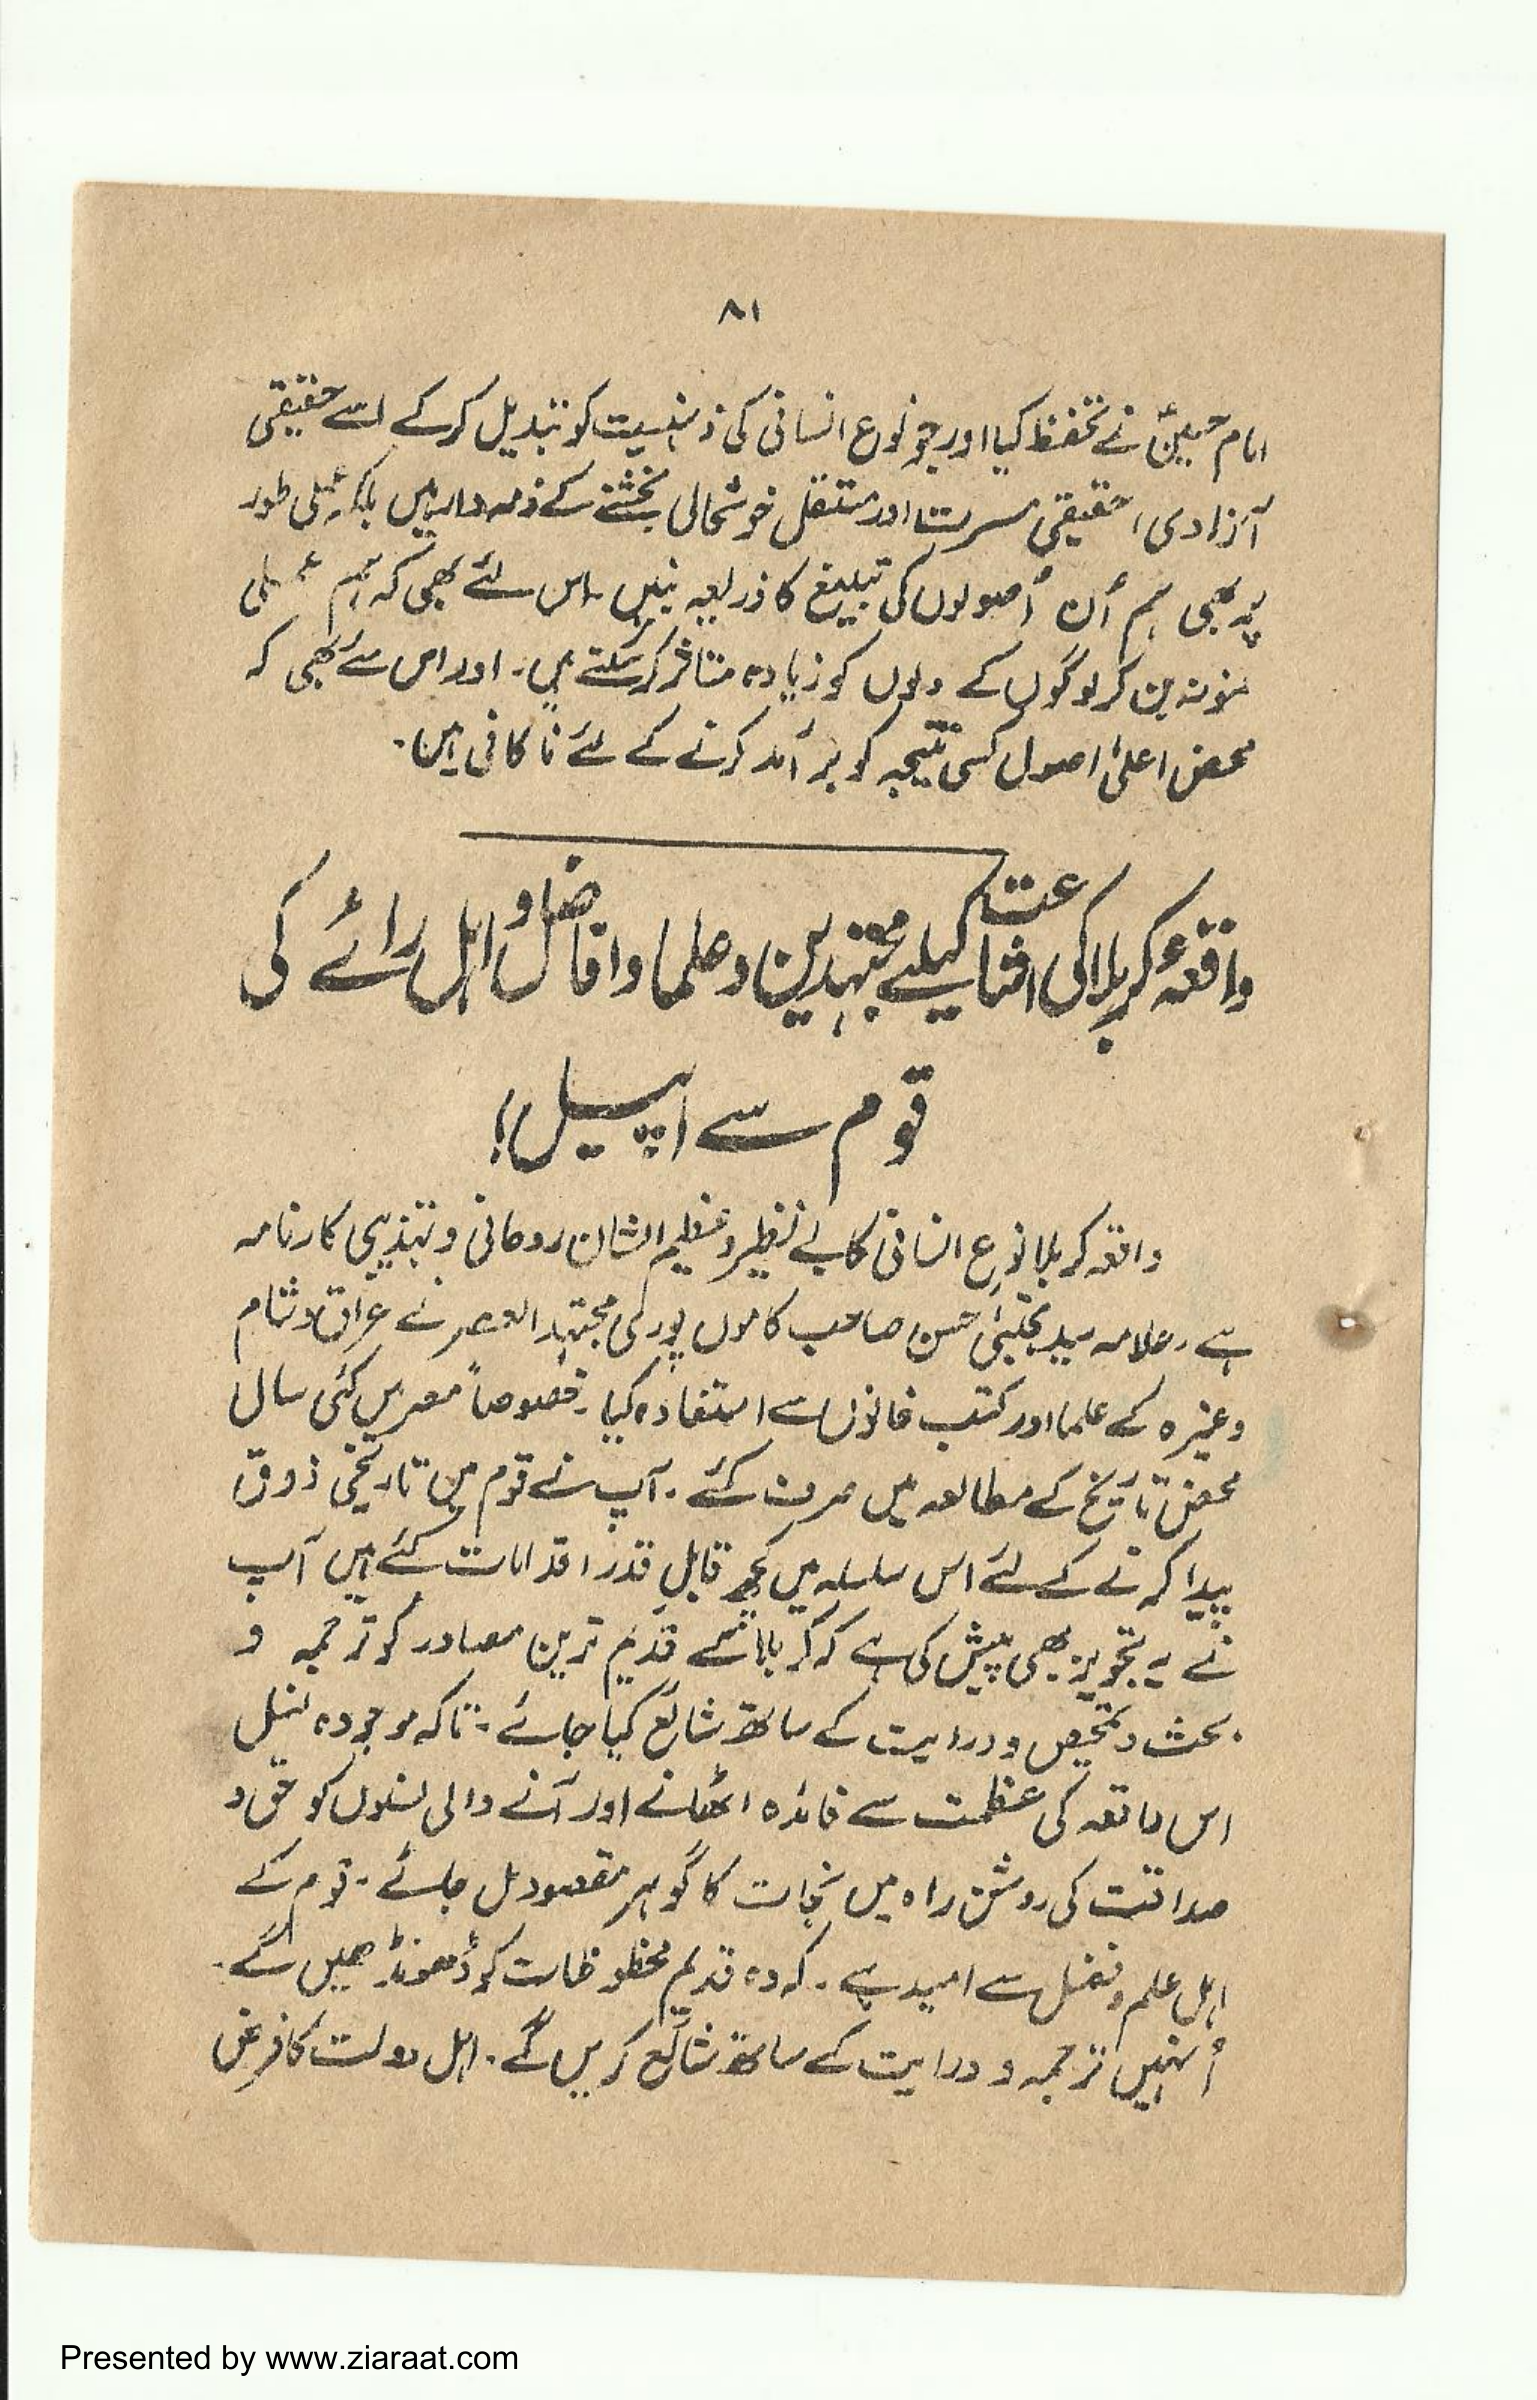 ۸۱
امام حسینؑ نے تحفظ کیا اور جو نوع انسانی کی ذہنیت کو تبدیل کرکے اسے حقیقی
آزادی، حقیقی مسرت اور مستقل خوشحالی بخشنے کے ذمہ دار ہیں بلکہ عملی طور
پر بھی ہم اُن اُصولوں کی تبلیغ کا ذریعہ بنیں۔ اس لئے بھی کہ ہم عملی
نمونہ بن کر لوگوں کے دلوں کو زیادہ متاثر کرسکتے ہیں۔ اور اس لئے بھی کہ
محض اعلیٰ اصول کسی نتیجہ کو برآمد کرنے کے لئے ناکافی ہیں۔
واقعۂ کربلا کی اشاعت کیلیے مجتہدین و علما و افاضل و اہل رائے کی
قوم سے اپیل!
واقعہ کربلا نوع انسانی کا بے نظیر و عظیم الشان روحانی و تہذیبی کارنامہ
ہے۔ علامہ سید مجتبیٰ حسن صاحب کاموں پوری مجتہد العصر نے عراق و شام
وغیرہ کے علما اور کتب خانوں سے استفادہ کیا۔ خصوصاً مصر میں کئی سال
محض تاریخ کے مطالعہ میں صرف کئے۔ آپ نے قوم میں تاریخی ذوق
پیدا کرنے کے لئے اس سلسلہ میں کچھ قابلِ قدر اقدامات کئے ہیں آپ
نے یہ تجویز بھی پیش کی ہے کہ کربلا کے قدیم ترین مصادر کو ترجمہ و
بحث و تمحیص و درایت کے ساتھ شائع کیا جائے۔ تاکہ موجودہ نسل
اس واقعہ کی عظمت سے فائدہ اٹھائے اور آنے والی نسلوں کو حق و
صداقت کی روشن راہ میں نجات کا گوہر مقصود مل جائے۔ قوم کے
اہل علم و فضل سے امید ہے۔ کہ وہ قدیم مخطوطات کو ڈھونڈھیں گے۔
اُنہیں ترجمہ و درایت کے ساتھ شائع کریں گے۔ اہل دولت کا فرض
Presented by www.ziaraat.com